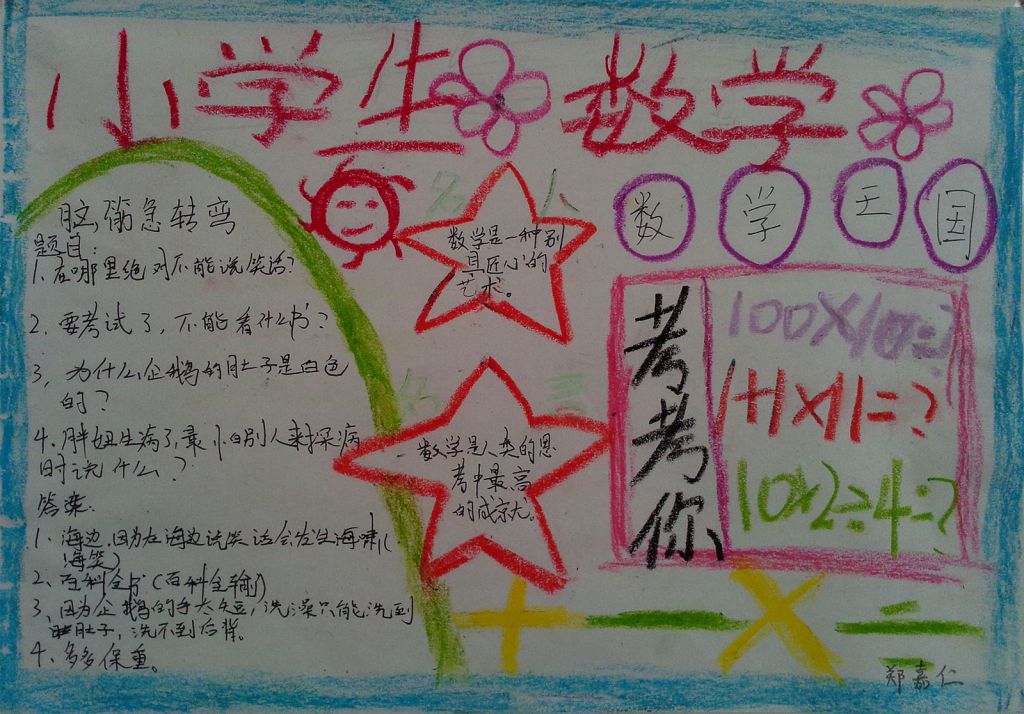 小学生数学
脑筋急转弯
题目:
1.在哪里绝对不能说笑话?
2.要考试了,不能看什么书?
3,为什么企鹅的肚子是白色
的?
4.胖妞生病了,最怕别人来探病
时说什么?
答案:
1、海边,因为在海边说笑话会发生海啸(
海笑)
2、百科全书(百科全输)
3、因为企鹅的手太短,洗澡只能洗到
肚子,洗不到后背。
4、多多保重。
名人
数学是一种别
具匠心的
艺术。
名言
数学是人类的思
考中最高
的成就。
数学王国
考考你
100×10=?
1+1×11=?
10×2÷4=?
+ - × ÷
郑嘉仁